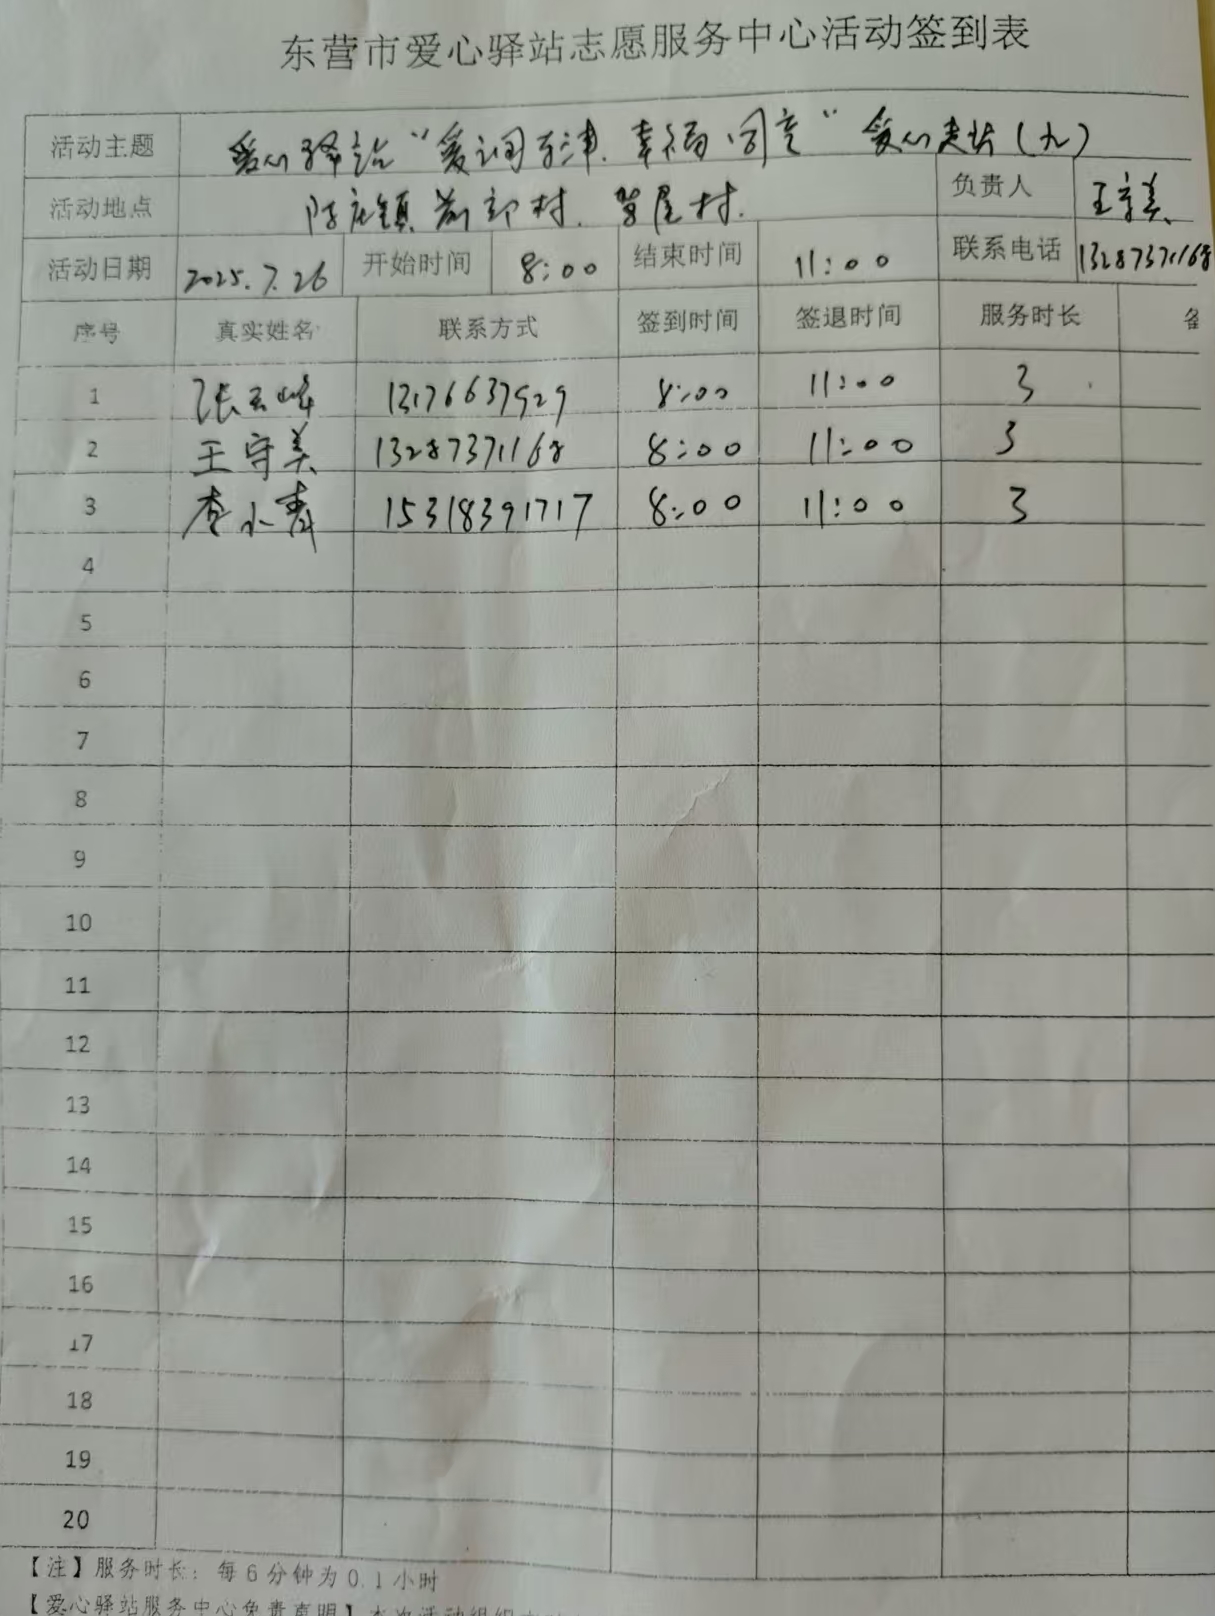 东营市爱心驿站志愿服务中心活动签到表
活动主题 爱心驿站“爱润东津.幸福同行”爱心走访(九)
活动地点 陈庄镇前郭村. 村. 负责人 王守美
活动日期 2025.7.26 开始时间 8:00 结束时间 11:00 联系电话 13287371168
序号 真实姓名 联系方式 签到时间 签退时间 服务时长
1 张玉峰 13176637929 8:00 11:00 3
2 王守美 13287371168 8:00 11:00 3
3 李小青 15318391717 8:00 11:00 3
4
5
6
7
8
9
10
11
12
13
14
15
16
17
18
19
20
【注】服务时长：每6分钟为0.1小时
【爱心驿站服务中心免责声明】本次活动组织